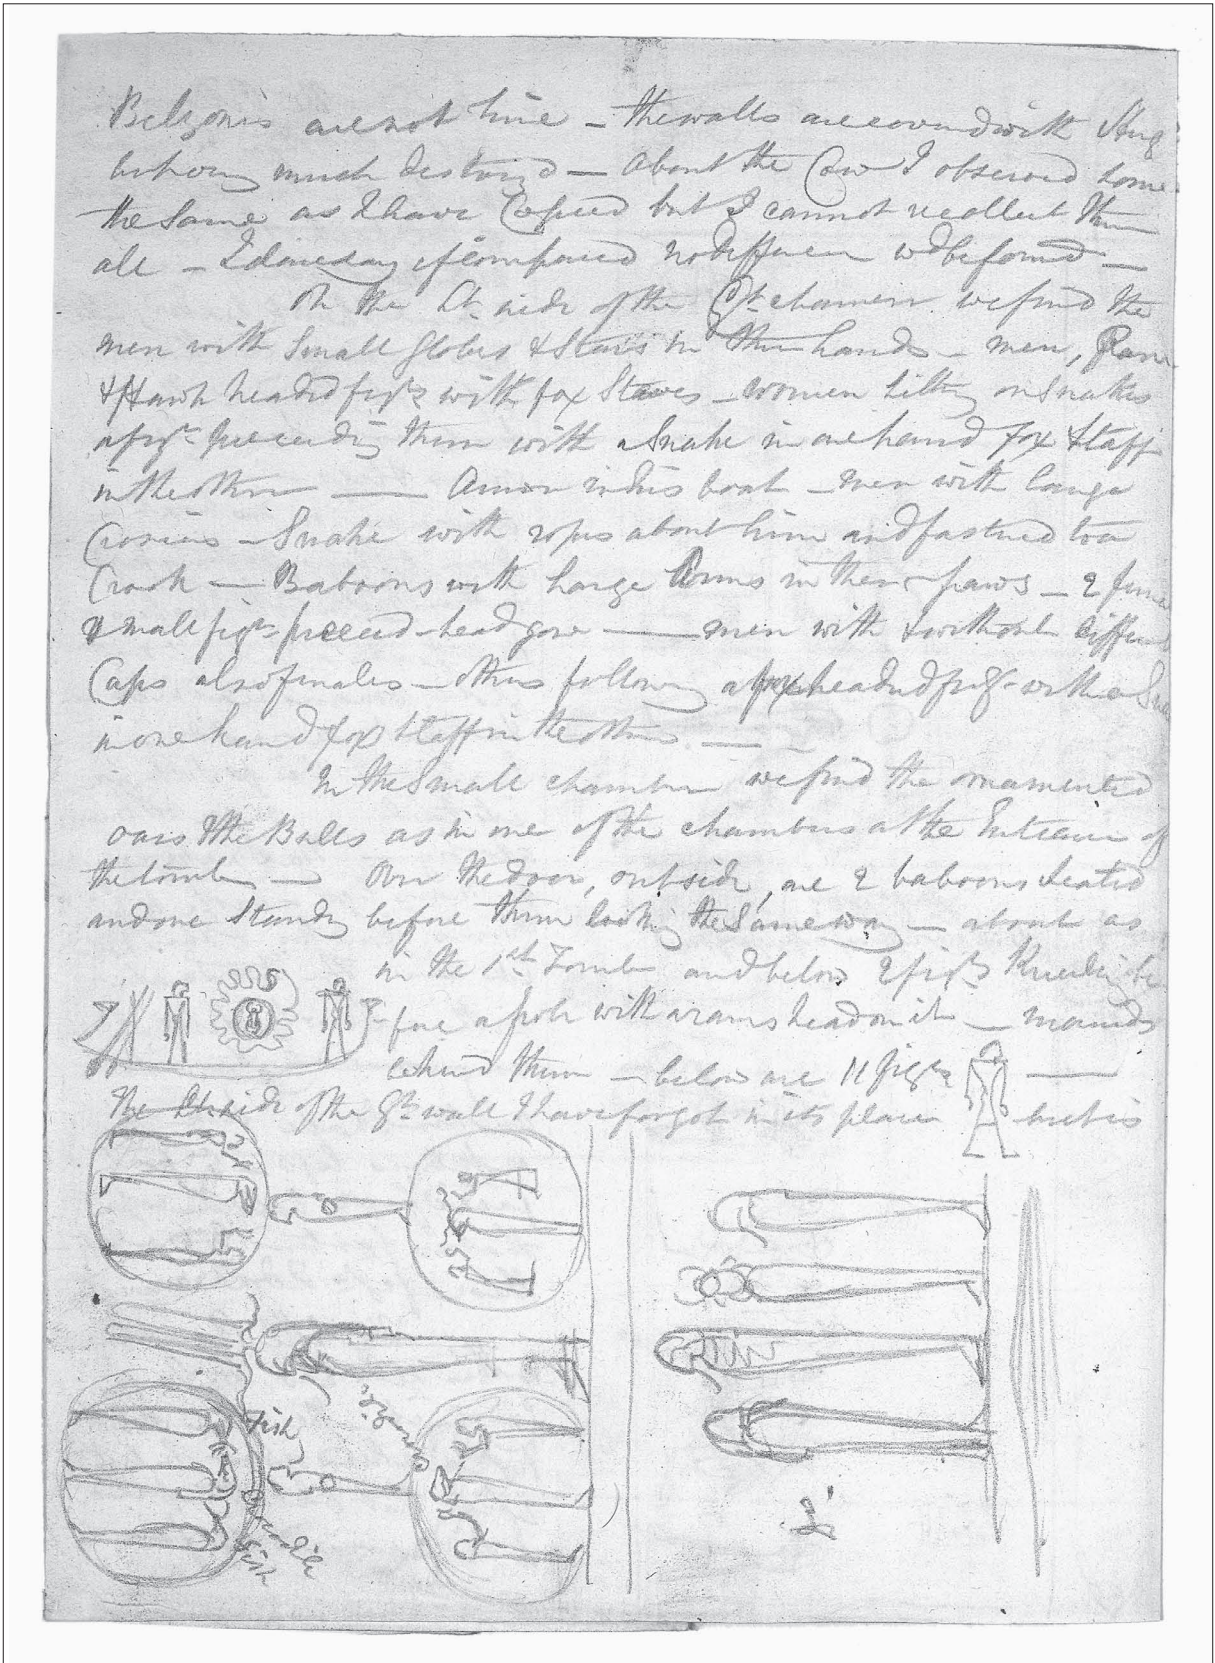 Belzoni's are not here – the walls are covered with
but very much destroyed – about the Cow I observed some
the same as I have Copied but I cannot recollect them
all – I daresay if compared no differen wd be found –
On the Lt. side of the Gt. chamer we find the
men with small globes & Stars in their hands – men,
& Hawk headed figs with fox Staves – women sitting on Snakes
a fige. preceeding them with a Snake in one hand fox Staff
in the other — Amon in his boat – men with large
Crosiers – Snake with ropes about him and fastned to a
Crook – Baboons with large in their paws – 2
small figs. preceed – head gone — men with & without differen
Caps also females – others following a fox headed fig. with a
in one hand fox staff in the other —
In the Small chamber we find the ornamented
oars & the Bulls as in one of the chambers at the Entrance of
the tomb — Over the door, outside, are 2 baboons seated
and one Standg before them looking the Same way – about as
in the 1st Tomb and below 2 figs Kneeling be
-fore a pole with a rams head on it –
behind them – below are 11 figs —
The Lt side of the Gt wall I have forgot in its place but is
Fish
Fish
L